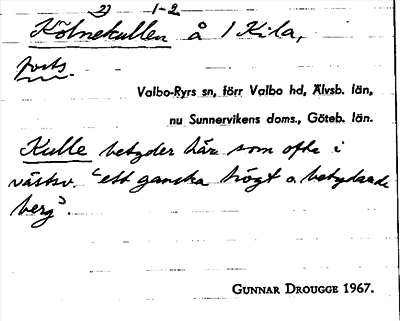 2) 1-2
Kölnekullen å 1 Kila,
forts.
Valbo-Ryrs sn, förr Valbo hd, Älvsb. län,
nu Sunnervikens doms., Göteb. län.
Kulle betyder här som ofta i
västsv. "ett ganska högt o. betydande
berg".
GUNNAR DROUGGE 1967.